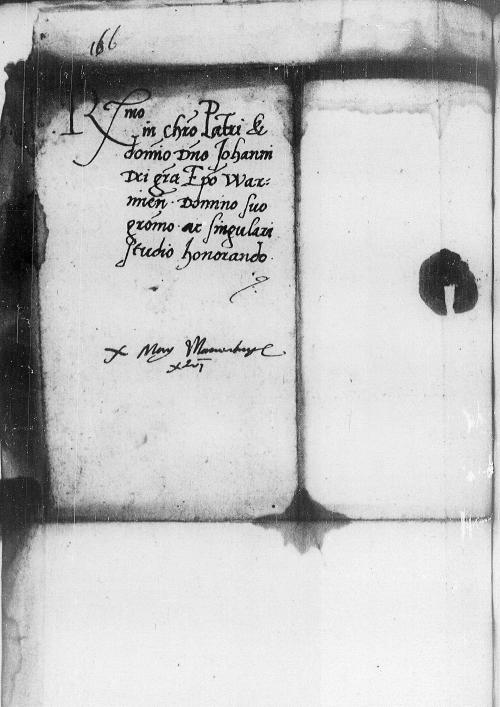 166
Rmo
in chro Patri &
domio Dno Johanni
Dei gra Epo War:
mień. Domino suo
gromo ac singulari
studio honorando.
x Marienburge
xlvj